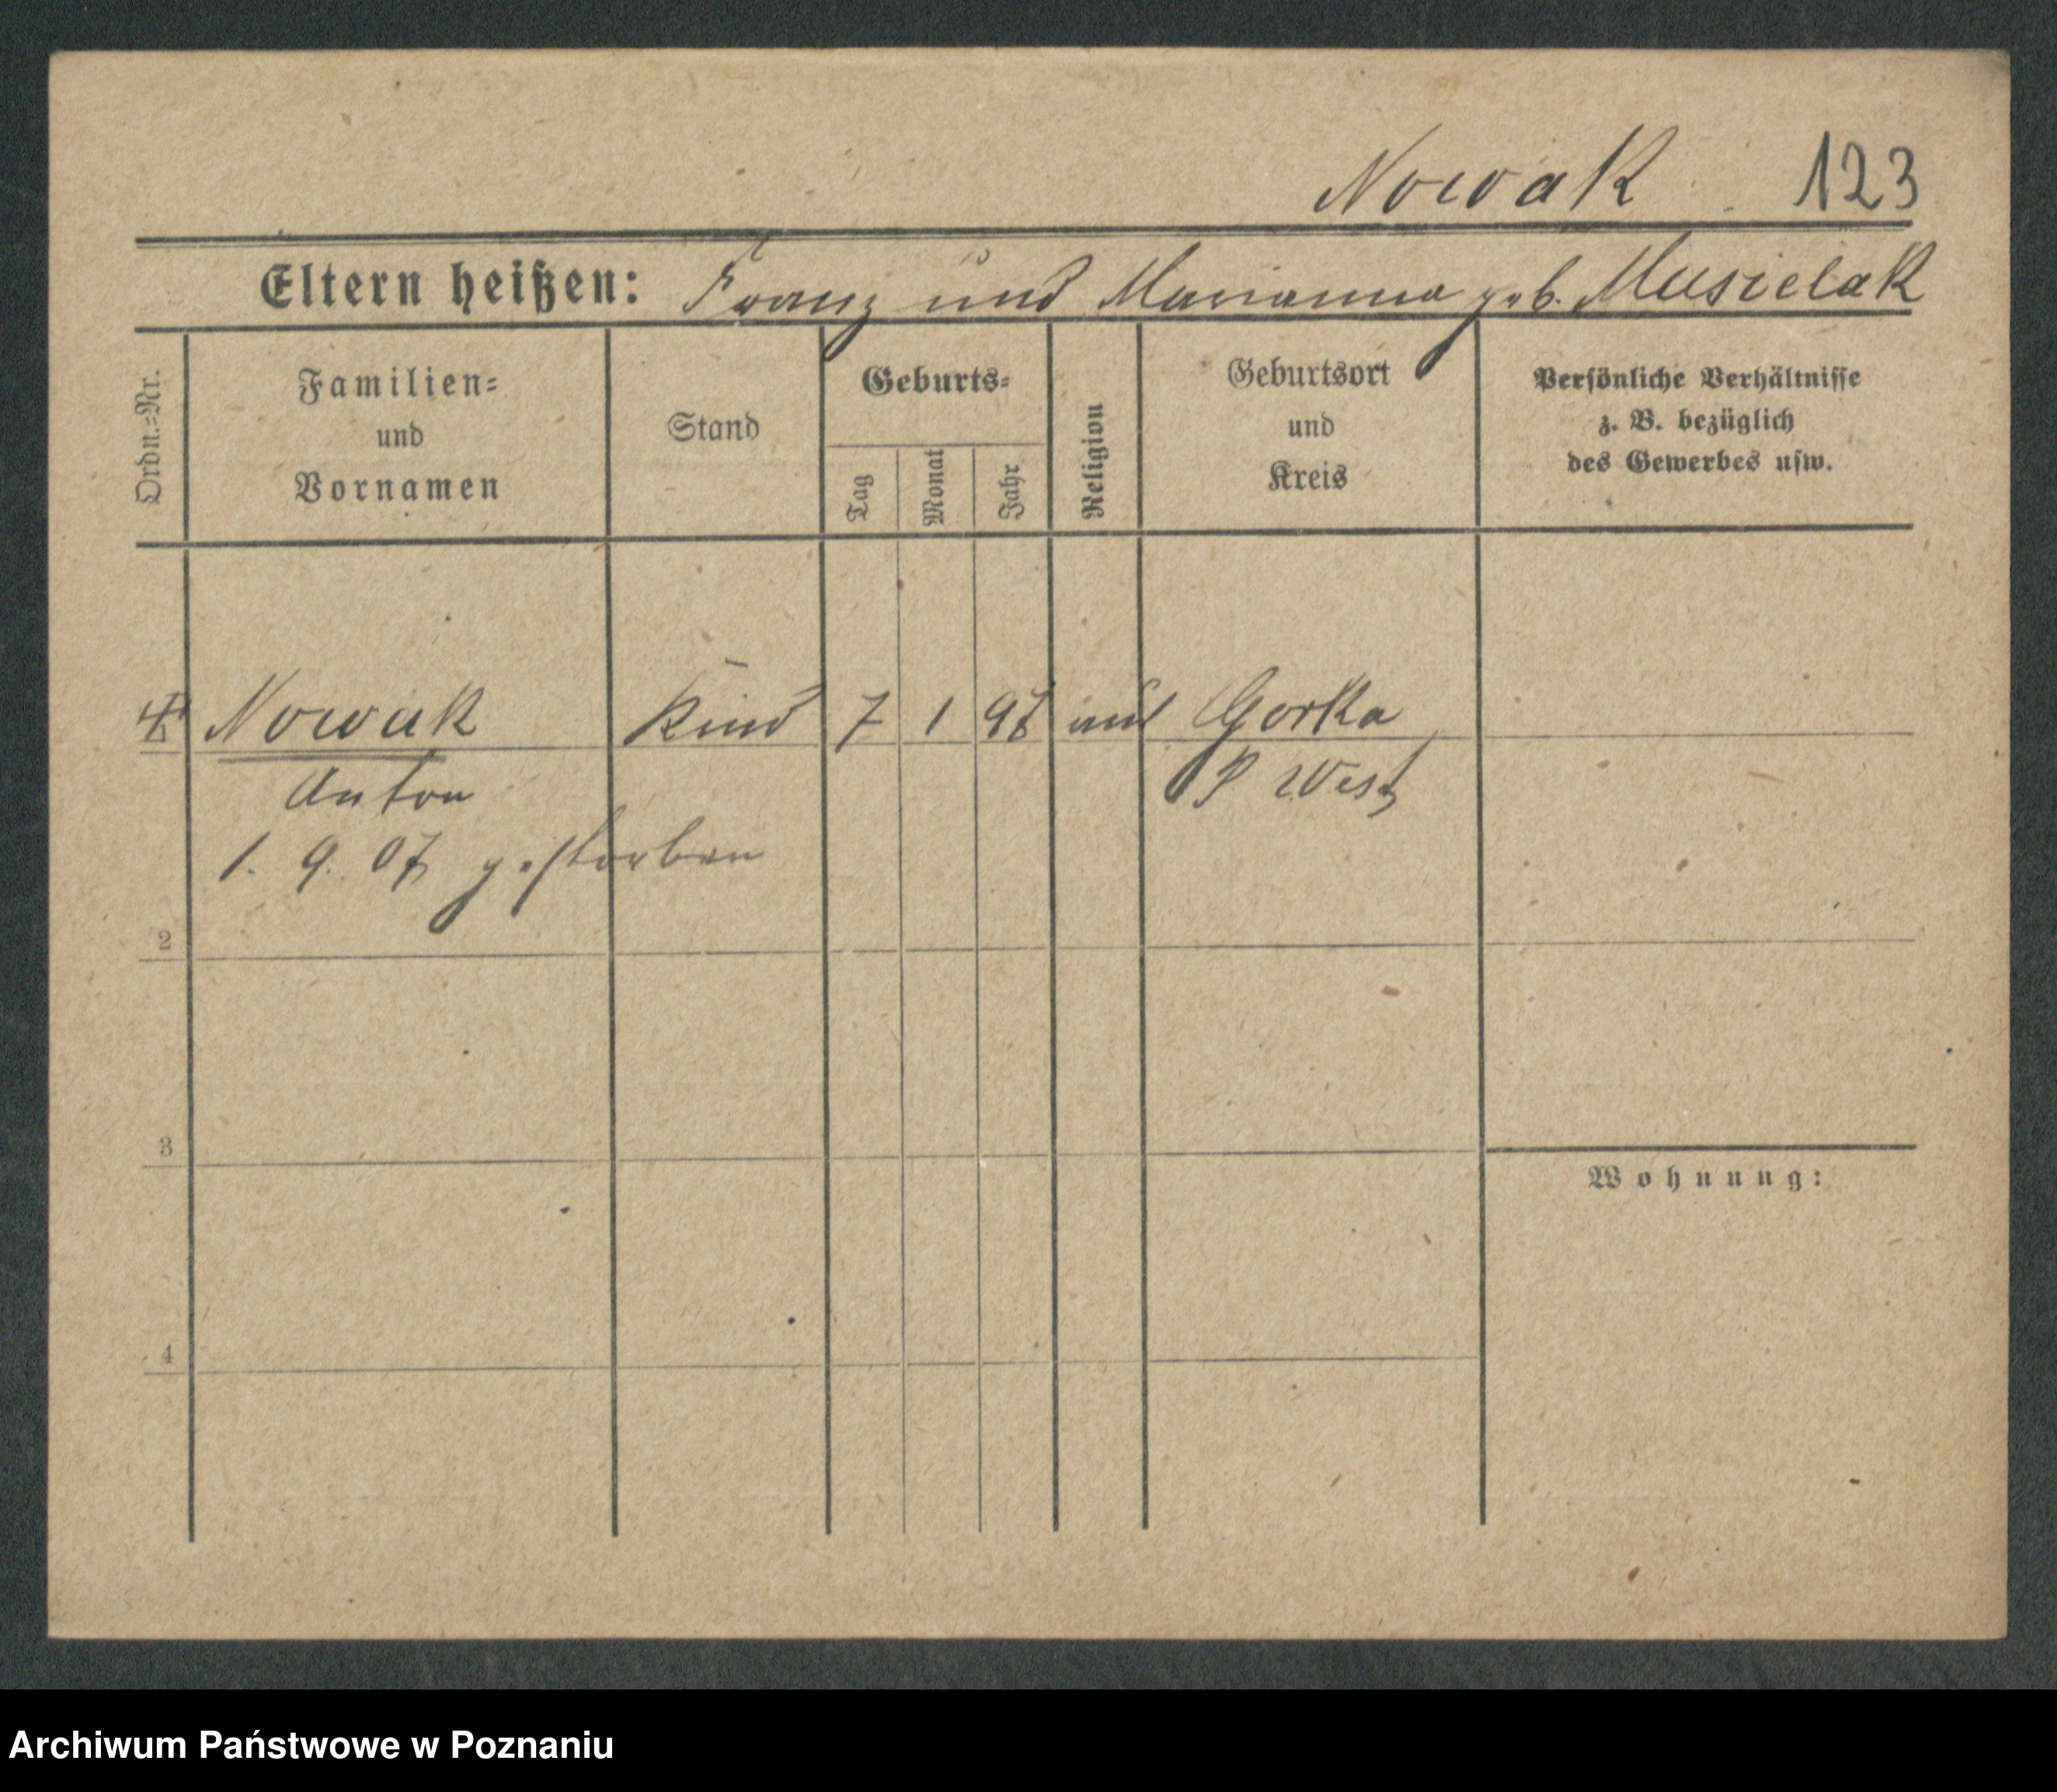 Nowak 123
Eltern heißen: Franz und Marianna geb. Musielak
Ordn.=Nr.
Familien=
und
Vornamen
Stand
Geburts=
Tag
Monat
Jahr
Religion
Geburtsort
und
Kreis
Persönliche Verhältnisse
z. B. bezüglich
des Gewerbes usw.
Nowak Kind 7 1 Gorka
Anton P West
1. 9. 07 gestorben
2
3
Wohnung:
4
Archiwum Państwowe w Poznaniu